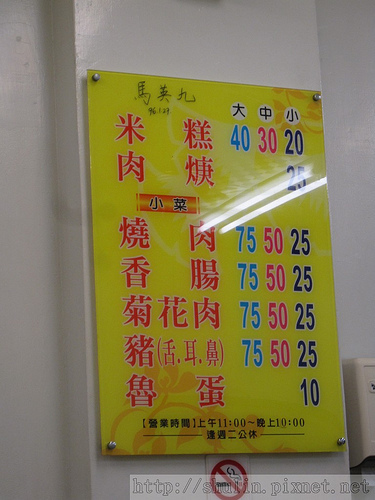 馬英九
96.1.23
大 中 小
米糕 40 30 20
肉焿 25
小菜
燒肉 75 50 25
香腸 75 50 25
菊花肉 75 50 25
豬(舌.耳.鼻) 75 50 25
魯蛋 10
【營業時間】上午11:00～晚上10:00
逢週二公休
http://shufin.pixnet.net